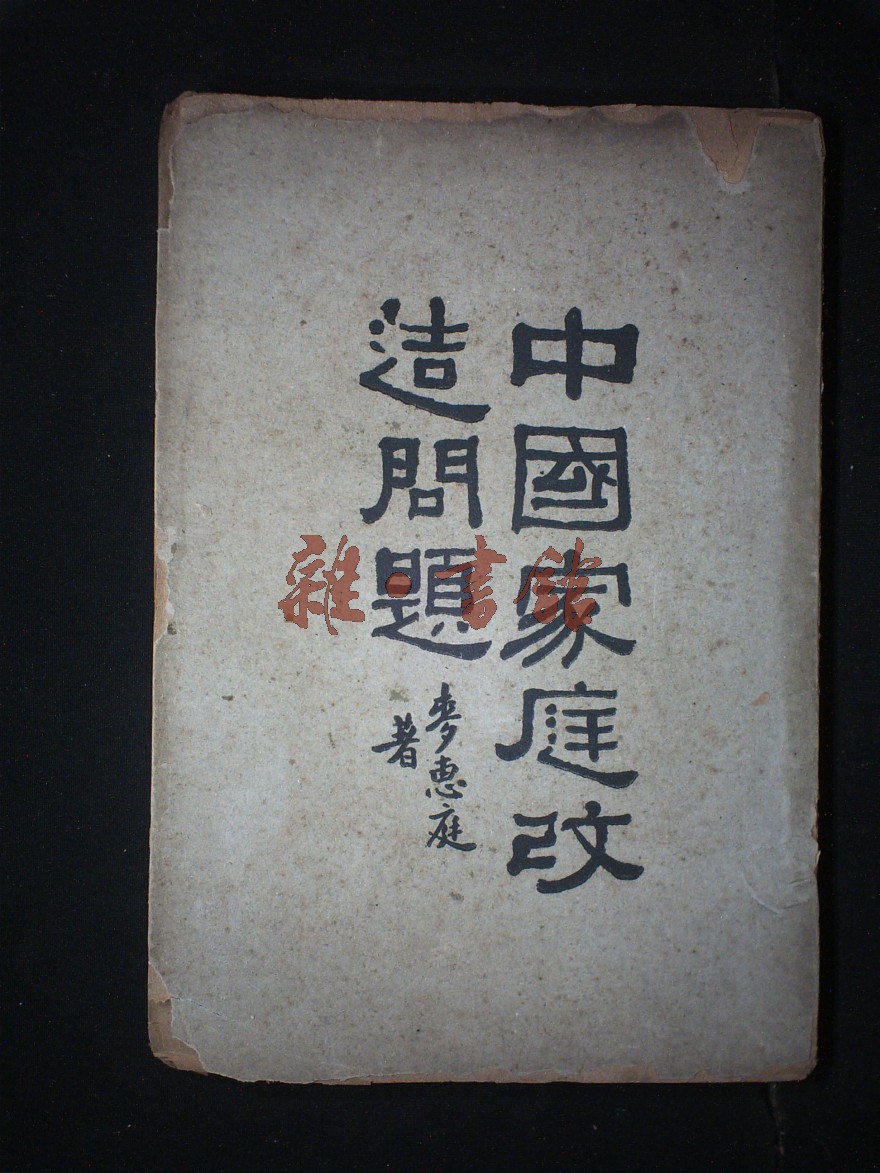 中國家庭改
造問題
麥惠庭
著
雜·書館